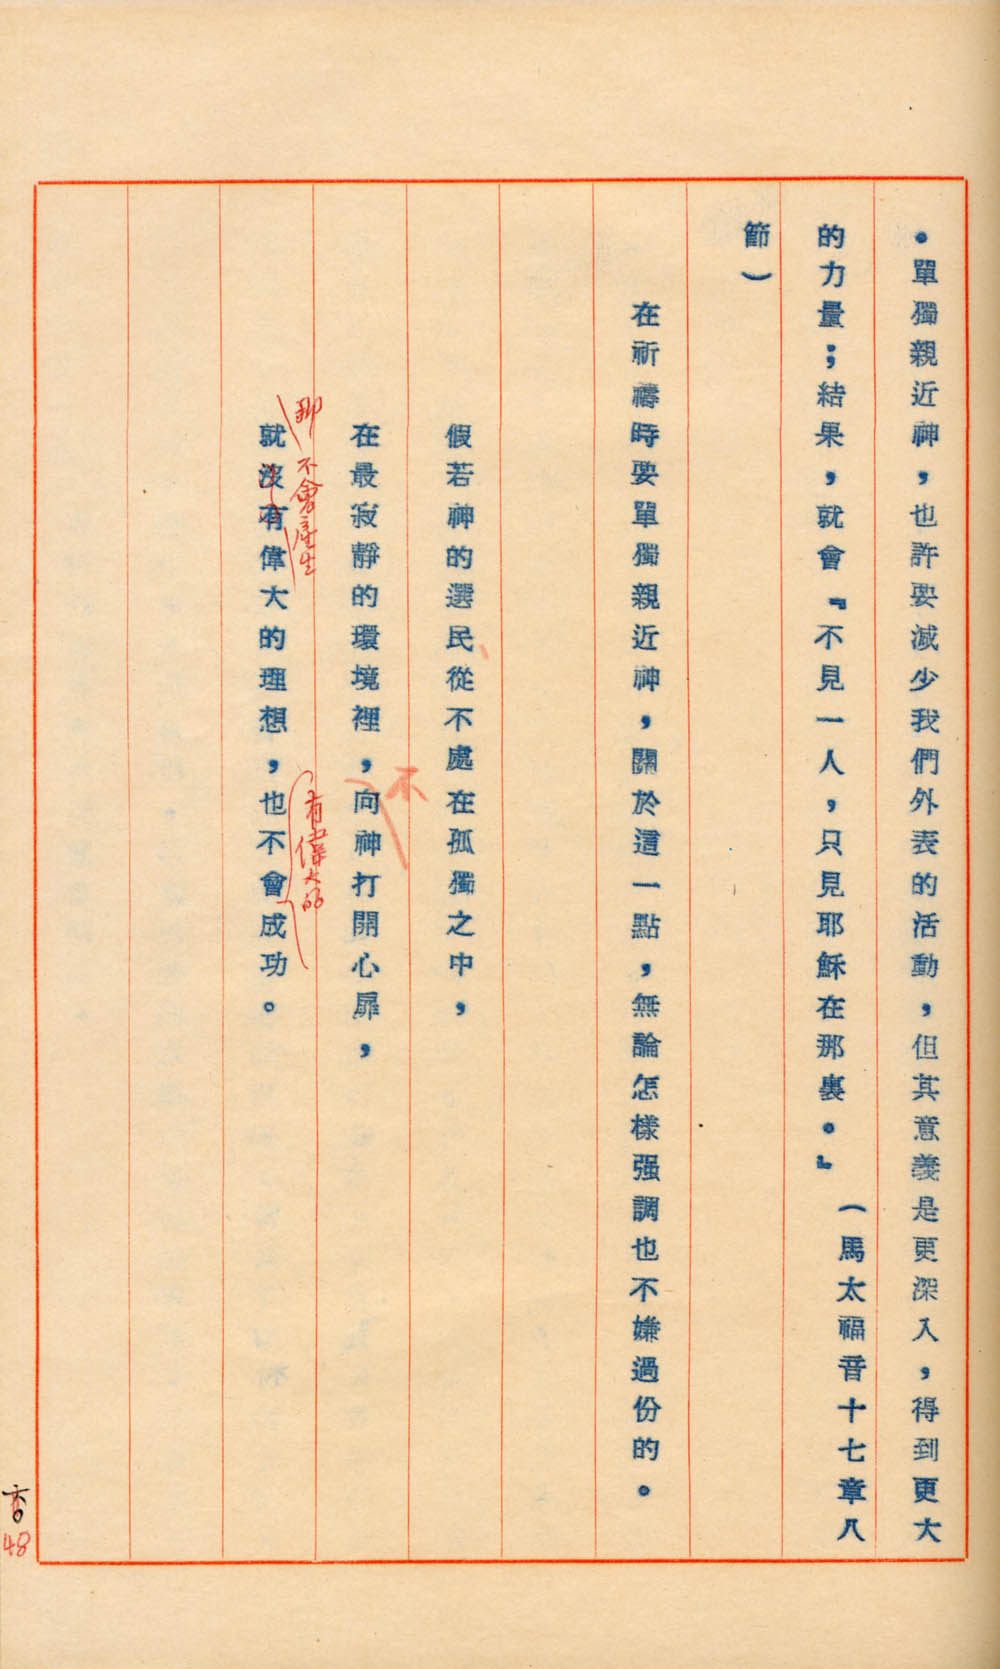 。單獨親近神，也許要減少我們外表的活動，但其意義是更深入，得到更大
的力量；結果，就會『不見一人，只見耶穌在那裏。』（馬太福音十七章八
節）
在祈禱時要單獨親近神，關於這一點，無論怎樣强調也不嫌過份的。
假若神的選民從不處在孤獨之中，
不
在最寂靜的環境裡，向神打開心扉，
不會產生
有偉大的
就沒有偉大的理想，也不會成功。
48